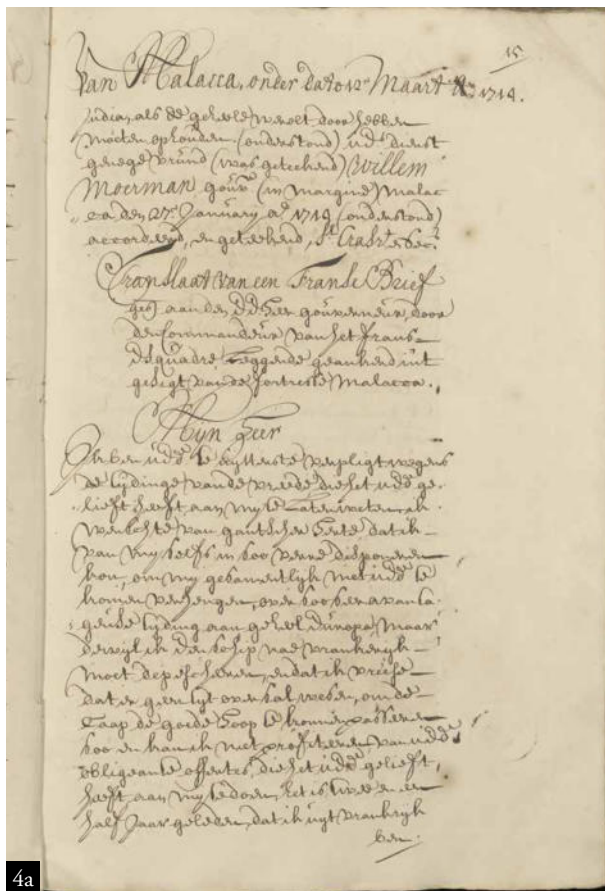 15
Van Malacca, onder dato 12en Maart Ao. 1714.
India, als de geheele werelt door hebben
moeten ophouden (onderstond) uEds dienst
genege vrund (was geteekend) Willem
Moerman gouvr (in margine) Malac
ca den 27e January ao 1714 (onderstond)
accordeerd, en geteekend,
Translaat van een Franse Brief
aan den Ed Heer gouverneur, door
den Commandeur van het frans
Esquadre, leggende geankerd int
gesigt van de fortresse Malacca.
Mijn Heer
Ik ben uEd te uytterste verpligt wegens
de tijdinge van de vreede die het uEd ge-
lieft heeft, aan my te laten weten, ik
wenschte van gantscher herte dat ik
van my selfs in soo verre disponeren
kon, om my gesamentlijk met uEd te
konnen verheugen, over soo een avanta
geuse tyding aan geheel Europa, maar
dewijl ik een schip nae vrankryk
moet depescheeren, en dat ik vreese
dat er geen tyt over sal wesen, om de
Caap de goede Hoop te konnen passeren
soo en kan ik niet profiteeren van uEds
obligeante offertes, die het uEd gelieft
heeft, aan my te doen, het is twee en een
half Jaar geleden, dat ik uyt vrankryk
ben
4a